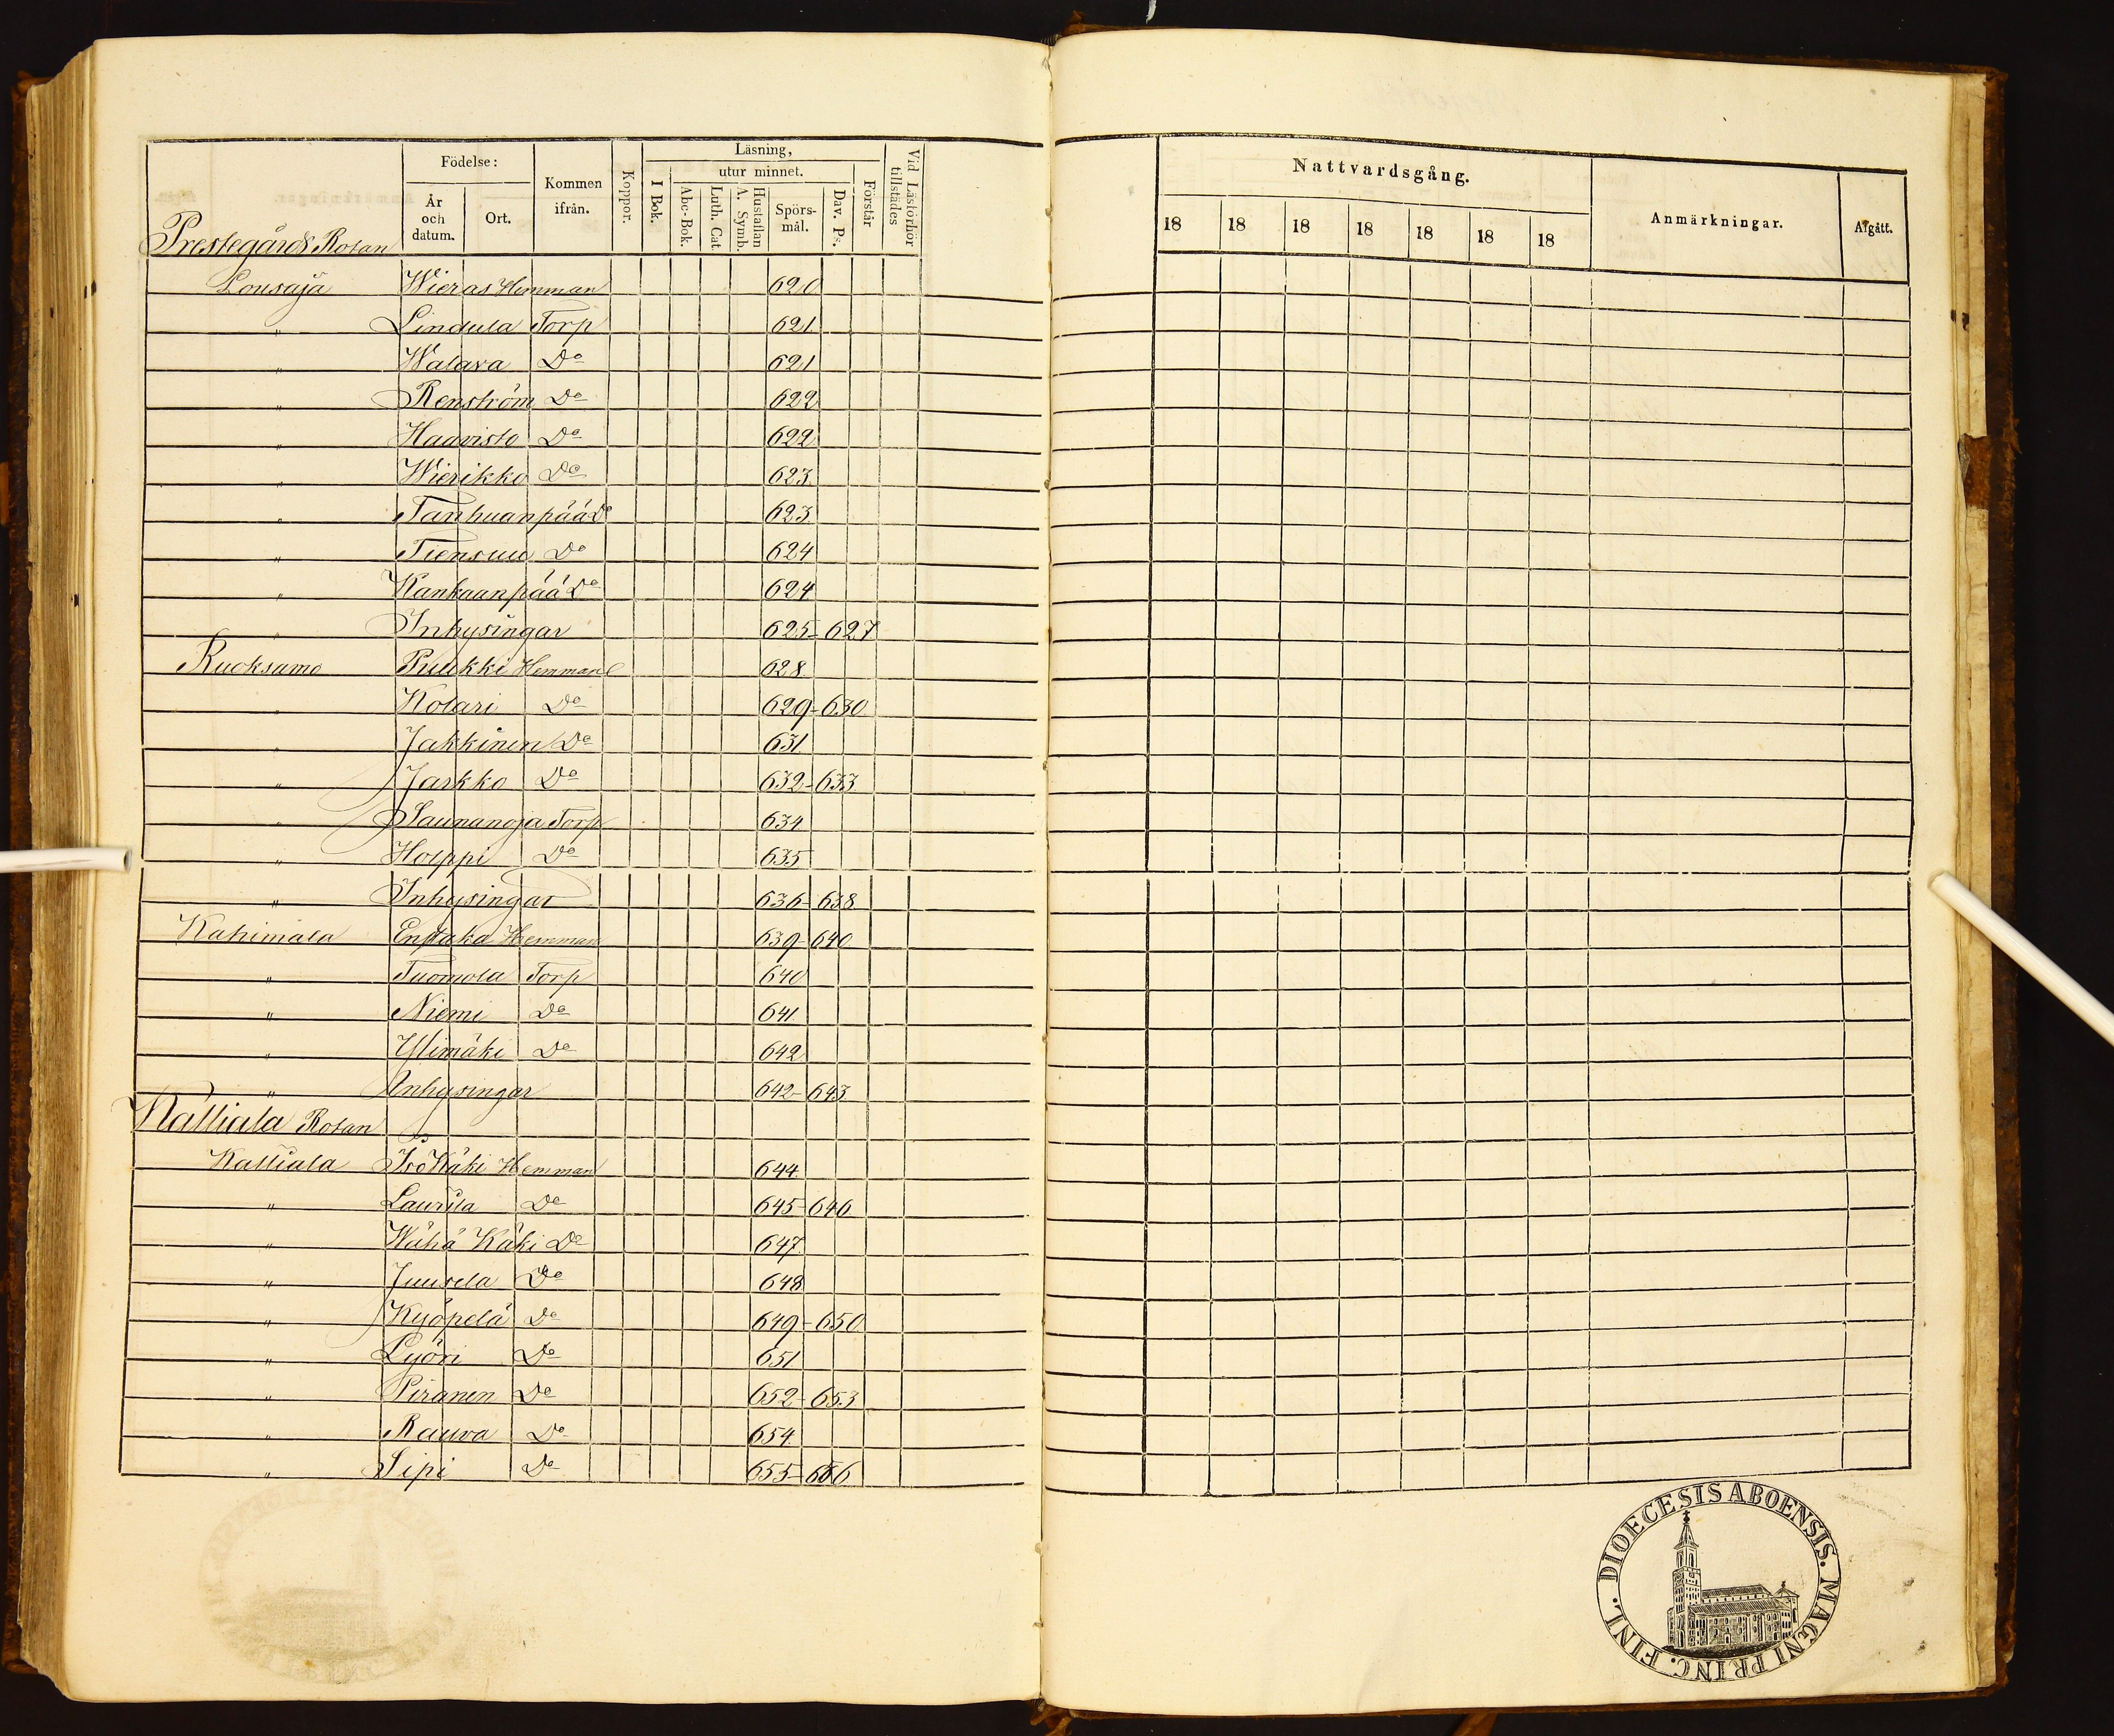 Födelse:
År och datum.
Ort.
Kommen ifrån.
Koppor.
Läsning,
utur minnet.
I Bok.
Abc-Bok.
Luth. Cat.
Hustaflan A. Symb.
Spörs-mål.
Dav. Ps.
Förstår
Vid Läsförhör tillstädes
Nattvardsgång.
18 18 18 18 18 18 18
Anmärkningar.
Afgått.
Prestegårds Rotan
Lousaja Wieras Hemman 620
" Lindula Torp 621
" Walava Do 621
" Renström Do 622
" Haavisto Do 622
" Wierikko Do 623
" Tanhuanpää Do 623
" Tiensuu Do 624
" Kankaanpää Do 624
" Inhysingar 625-627
Ruoksamo Puukki Hemman 628
" Kolari Do 629-630
" Jakkinen Do 631
" Jaskko Do 632-633
" Saunanoja Torp 634
" Holppi Do 635
" Inhysingar 636-638
Kahimala Enstaka Hemman 639-640
" Tuomola Torp 640
" Niemi Do 641
" Ylimäki Do 642
" Inhysingar 642-643
Kalliala Rotan
Kalliala Iso Käki Hemman 644
" Laurila Do 645-646
" Wähä Käki Do 647
" Juusela Do 648
" Kyöpelä Do 649-650
" Lyöri Do 651
" Piranen Do 652-653
" Rauva Do 654
" Sipi Do 655-656
DIOECESIS ABOENSIS. MAGNI PRINC. FINL.